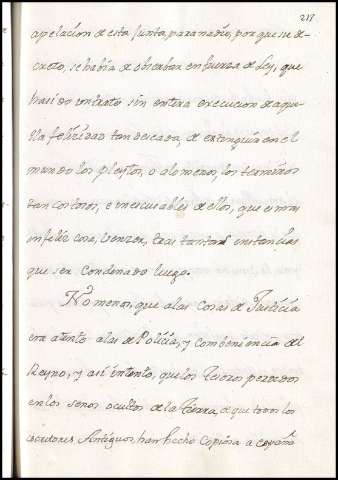 211
apelacion de esta Junta, para nadie, por que su de-
creto, se habia de obserbar en fuerza de Ley, que
han sido contrato sin entera execucion de aque-
lla felizidad tan deseada, de extinguir en el
mundo los pleytos, o alomenos, los terminos
tan costosos, e inescusables de ellos, que es mas
infeliz cosa, benzer, tras tantas instancias
que ser Condenado luego.
No menos, que alas Cosas de Justicia
era atento alas de Policia, y combeniencia del
Reyno, y asi intento, que los Tesoros perdidos
en los senos ocultos de la Tierra, de que todos los
escritores Antiguos, han hecho Copiosa a España